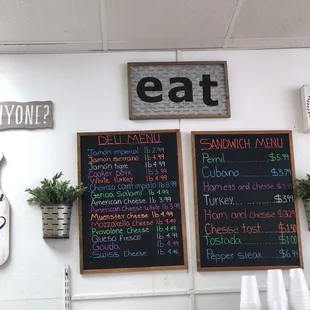 NYONE?
eat
DELI MENU
Jamón imperial lb
Jamón serrano lb 4.99
Jamón tigre lb 4.99
Cooked pork lb 4.99
White turkey lb 4.99
Genoa Salami lb 4.99
American Cheese lb 4.99
American cheese white lb 4.99
Muenster Cheese lb 4.99
Mozzarella Cheese lb 4.99
Provolone Cheese lb 4.99
Queso Fresco lb 4.99
Gouda lb 4.99
Swiss Cheese lb 4.99
SANDWICH MENU
Pernil $5.99
Cubano $5.99
Ham egg and cheese $3.99
Turkey $3.99
Ham and cheese $3.99
Cheese tost $1.50
Tostada $1.00
Pepper steak